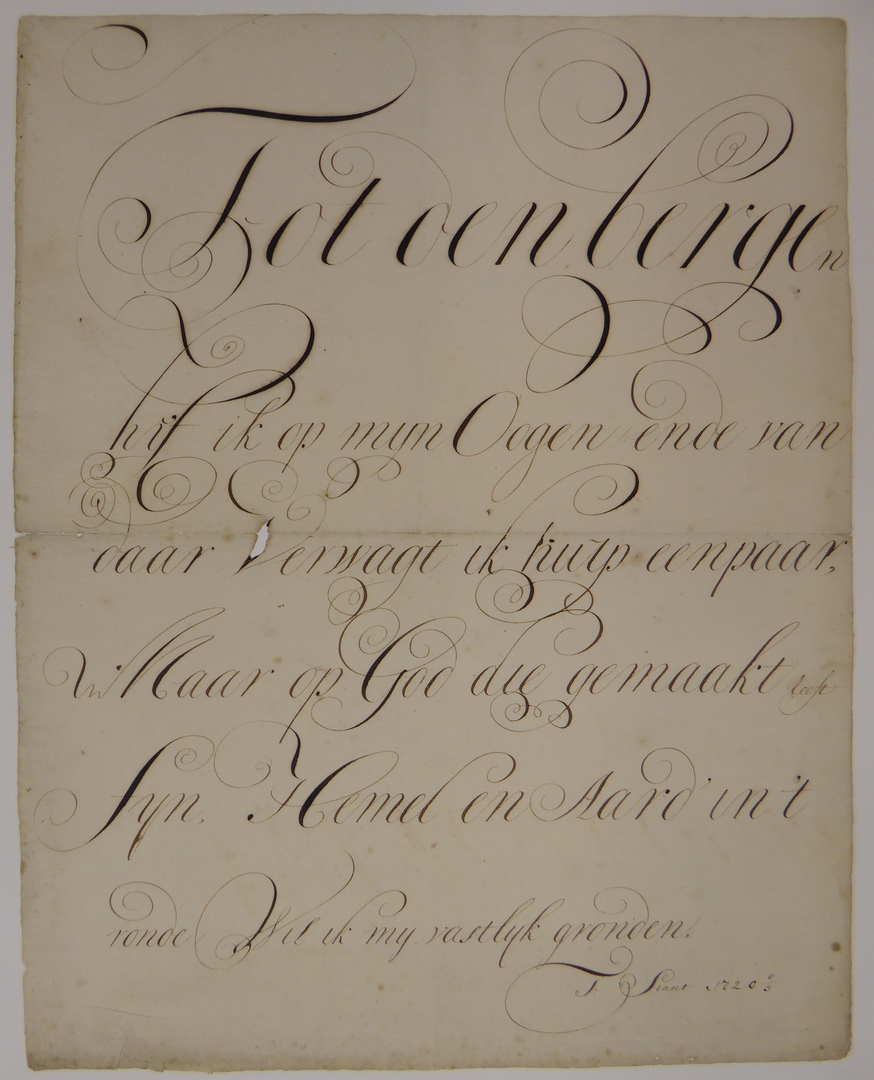 Tot den bergen
hef ik op myn Oogen ende van
daar Verwagt ik hulp eenpaar,
Maar op God die gemaakt heeft
Syn, Hemel en Aard in't
ronde Wil ik my vastlyk gronden.